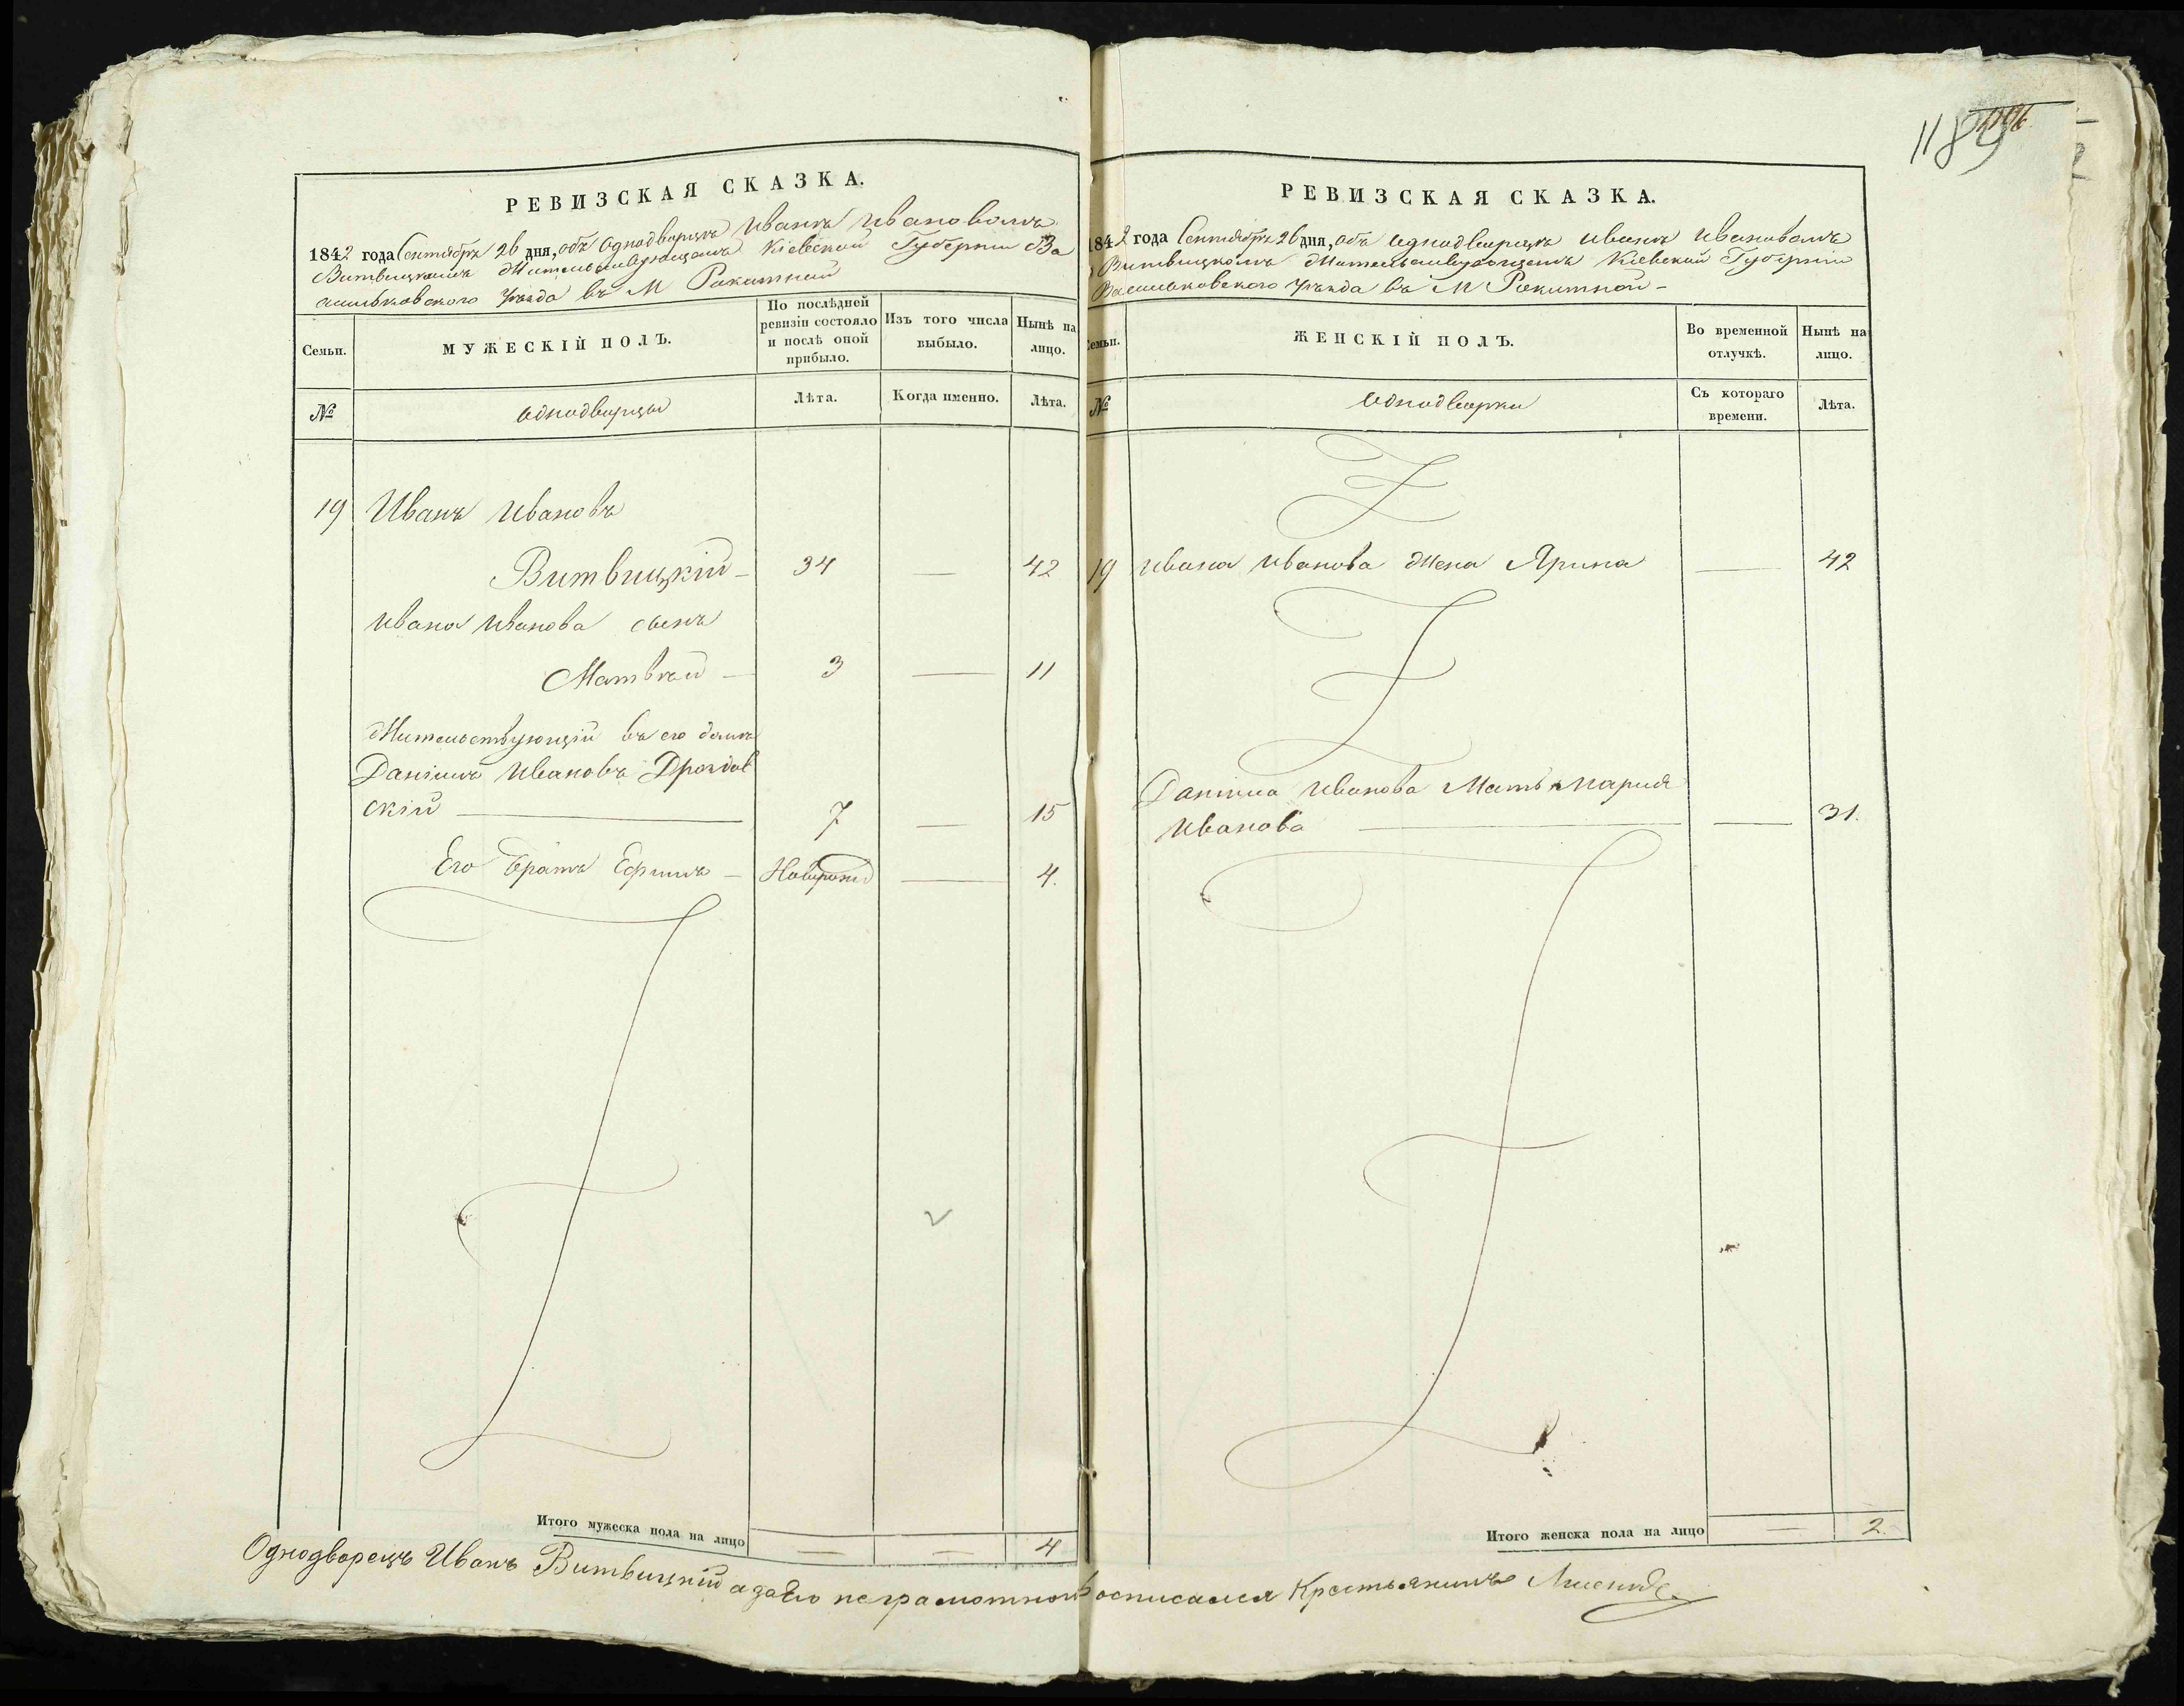 1189
РЕВИЗСКАЯ СКАЗКА.
1842 года Сентября 26 дня, объ Однодворцѣ Иванѣ Ивановомъ
Витвицкомъ Жительствующемъ Кіевской Губерніи Ва
сильковскаго уѣзда въ М Рокитной
Семьи.
МУЖЕСКІЙ ПОЛЪ.
По послѣдней
ревизіи состояло
и послѣ оной
прибыло.
Изъ того числа
выбыло.
Нынѣ на
лицо.
№
Однодворцы
Лѣта.
Когда именно.
Лѣта.
19 Иванъ Ивановъ
Витвицкій — 34 — 42
Ивана Иванова сынъ
Матвѣй — 3 — 11
Жительствующій въ его домѣ
Даніилъ Ивановъ Дроздов
скій — 7 — 15
Его братъ Ефимъ — Новорожд — 4.
Итого мужеска пола на лицо — — 4
РЕВИЗСКАЯ СКАЗКА.
1842 года Сентября 26 дня, объ Однодворцѣ Иванѣ Ивановомъ
Витвицкомъ Жительствующемъ Кіевской Губерніи
Васильковского уѣзда въ М Рокитной —
Семьи.
ЖЕНСКІЙ ПОЛЪ.
Во временной
отлучкѣ.
Нынѣ на
лицо.
№
Однодворки
Съ котораго
времени.
Лѣта.
19 Ивана Иванова Жена Ярина — 42
Даніила Иванова Мать Мария
Иванова — — 31.
Итого женска пола на лицо — 2.
Однодворецъ Иванъ Витвицкій а за его неграмотного росписался Крестьянинъ